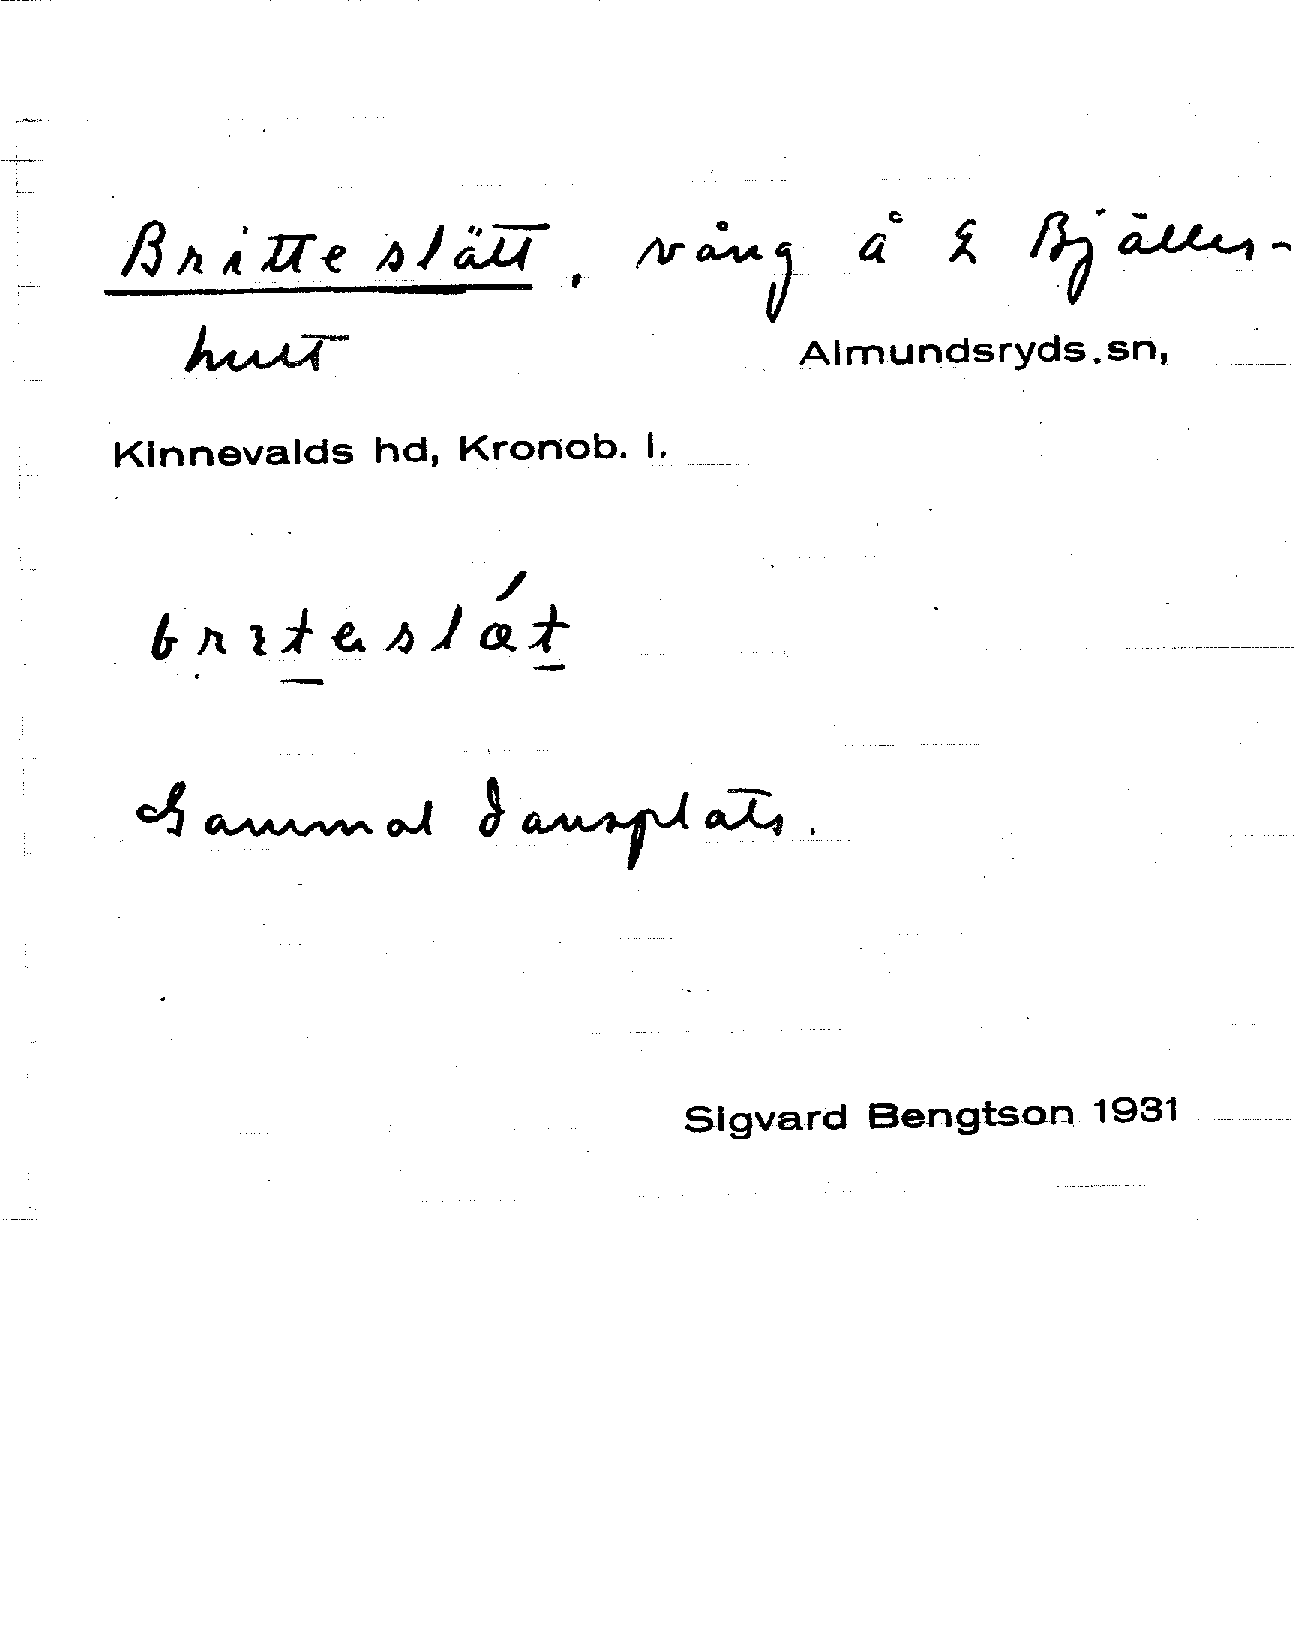 Britteslätt, vång å L Bjälles-
hult Almundsryds.sn,
Kinnevalds hd, Kronob. l.
britəslǽt
Gammal dansplats.
Sigvard Bengtson 1931